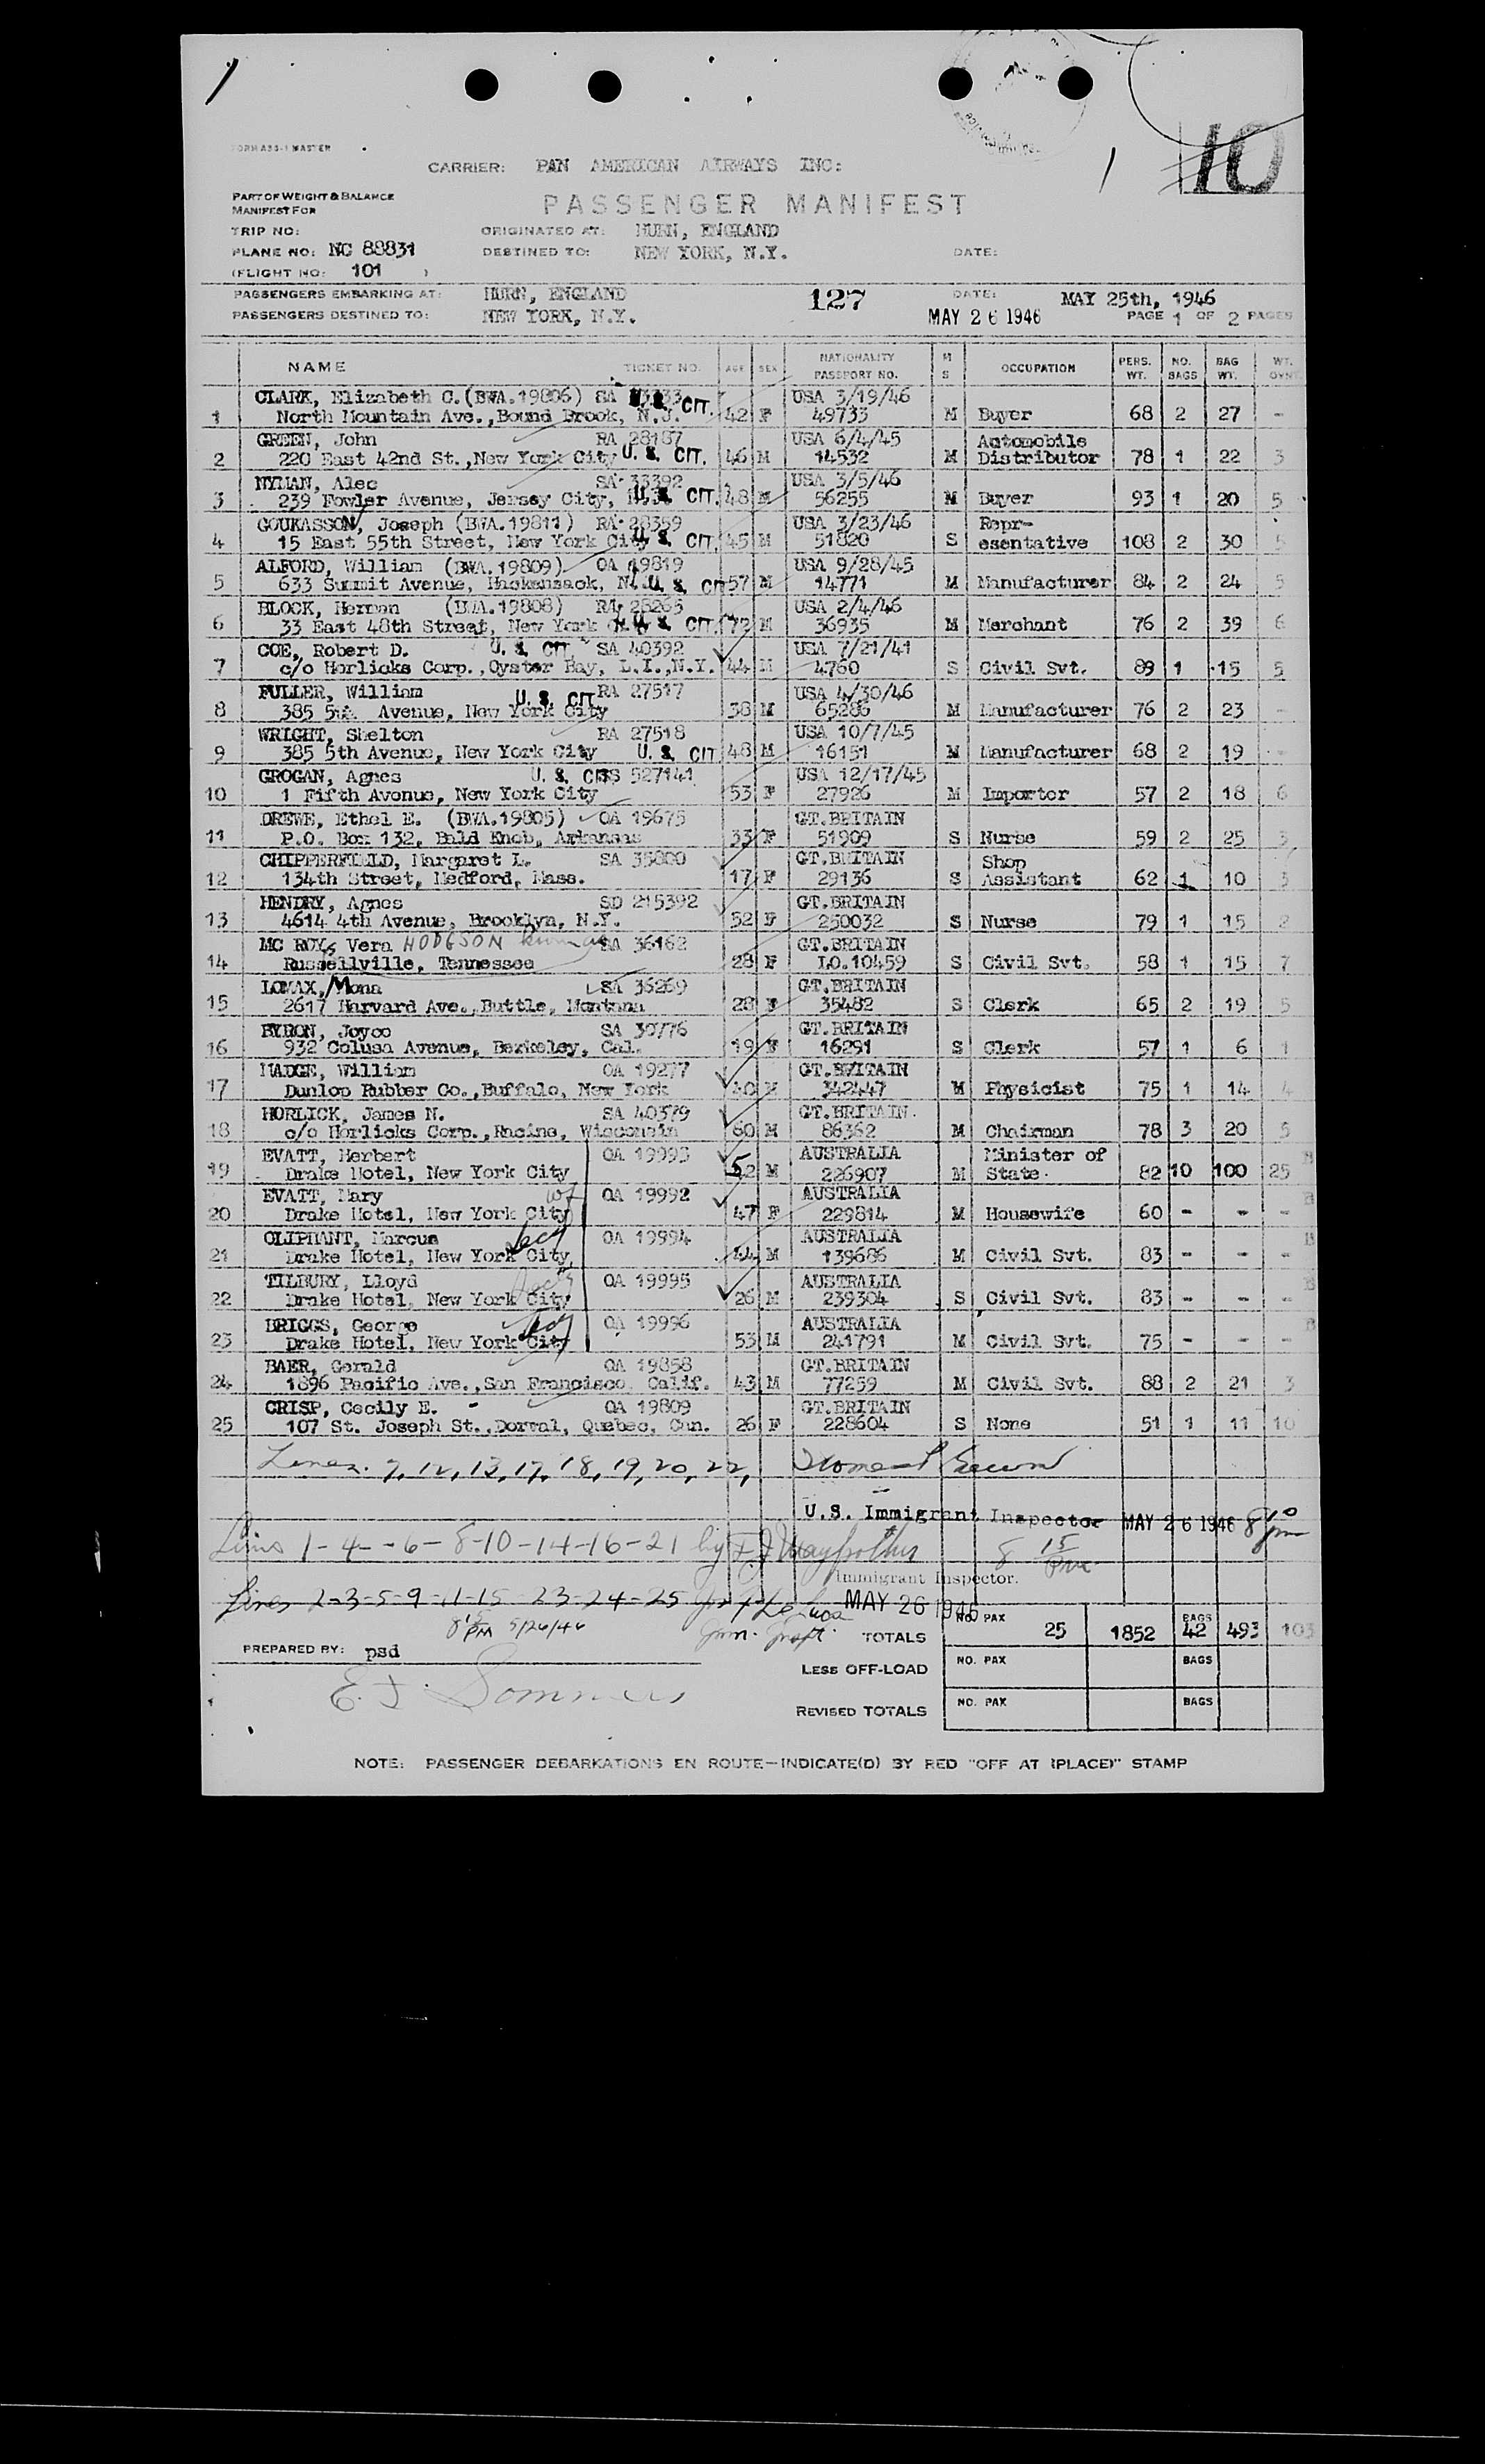 FORM A33-1 MASTER
10
CARRIER: PAN AMERICAN AIRWAYS INC:
PART OF WEIGHT & BALANCE
MANIFEST FOR
PASSENGER MANIFEST
TRIP NO: ORIGINATED AT: HURN, ENGLAND
PLANE NO: NC 88831 DESTINED TO: NEW YORK, N.Y. DATE:
(FLIGHT NO: 101 )
PASSENGERS EMBARKING AT: HURN, ENGLAND 127 DATE: MAY 25th, 1946
PASSENGERS DESTINED TO: NEW YORK, N.Y. MAY 26 1946 PAGE 1 OF 2 PAGES
NAME TICKET NO. AGE SEX NATIONALITY PASSPORT NO. M S OCCUPATION PERS. WT. NO. BAGS BAG WT. WT.
CLARK, Elizabeth C. (BWA.19806) SA USA 3/19/46
1 North Mountain Ave., Bound Brook, N.J. U. S. CIT. 42 F 49733 M Buyer 68 2 27 -
GREEN, John RA 28187 USA 6/4/45 Automobile
2 220 East 42nd St., New York City U. S. CIT. 46 M 14532 M Distributor 78 1 22 3
NYMAN, Alec SA 33392 USA 3/5/46
3 239 Fowler Avenue, Jersey City, U. S. CIT. 48 M 56255 M Buyer 93 1 20 5
GOUKASSON, Joseph (BWA.19811) RA 28359 USA 3/23/46 Repr-
4 15 East 55th Street, New York City U. S. CIT. 45 M 51820 S esentative 108 2 30 5
ALFORD, William (BWA.19809) OA 19819 USA 9/28/45
5 633 Summit Avenue, Hackensack, N.J. U. S. CIT 57 M 14771 M Manufacturer 84 2 24 5
BLOCK, Herman (BWA.19808) RA 28265 USA 2/4/46
6 33 East 48th Street, New York U. S. CIT. 72 M 36935 M Merchant 76 2 39 6
COE, Robert D. U. S. CIT. SA 40392 USA 7/21/41
7 c/o Horlicks Corp., Oyster Bay, L.I., N.Y. 44 M 4760 S Civil Svt. 89 1 15 5
FULLER, William U. S. CIT RA 27517 USA 4/30/46
8 385 5th Avenue, New York City 38 M 65286 M Manufacturer 76 2 23 -
WRIGHT, Shelton RA 27518 USA 10/7/45
9 385 5th Avenue, New York City U. S. CIT 48 M 16151 M Manufacturer 68 2 19 -
GROGAN, Agnes U. S. CIT 527141 USA 12/17/45
10 1 Fifth Avenue, New York City 53 F 27926 M Importer 57 2 18 6
DREWE, Ethel E. (BWA.19805) OA 19675 GT.BRITAIN
11 P.O. Box 132, Bald Knob, Arkansas 33 F 51909 S Nurse 59 2 25 3
CHIPPERFIELD, Margaret L. SA 35800 GT.BRITAIN Shop
12 134th Street, Medford, Mass. 17 F 29136 S Assistant 62 1 10 3
HENDRY, Agnes SD 215392 GT.BRITAIN
13 4614 4th Avenue, Brooklyn, N.Y. 52 F 250032 S Nurse 79 1 15 2
MC ROY, Vera HODGSON SA 36162 GT.BRITAIN
14 Russellville, Tennessee 28 F LO.10459 S Civil Svt. 58 1 15 7
LOMAX, Mona SA 36269 GT.BRITAIN
15 2617 Harvard Ave., Buttle, Montana 28 F 35482 S Clerk 65 2 19 5
BYRON, Joyce SA 30776 GT.BRITAIN
16 932 Colusa Avenue, Berkeley, Cal. 19 F 16291 S Clerk 57 1 6 1
MADGE, William OA 19277 GT.BRITAIN
17 Dunlop Rubber Co., Buffalo, New York 40 M 342447 M Physicist 75 1 14 4
HORLICK, James N. SA 40379 GT.BRITAIN.
18 c/o Horlicks Corp., Racine, Wisconsin 60 M 86362 M Chairman 78 3 20 5
EVATT, Herbert OA 19993 AUSTRALIA Minister of
19 Drake Hotel, New York City 52 M 226907 M State 82 10 100 25
EVATT, Mary wf OA 19992 AUSTRALIA
20 Drake Hotel, New York City 47 F 229814 M Housewife 60 - - -
OLIPHANT, Marcus OA 19994 AUSTRALIA
21 Drake Hotel, New York City secy 44 M 139686 M Civil Svt. 83 - - -
TILBURY, Lloyd OA 19995 AUSTRALIA
22 Drake Hotel, New York City secy 26 M 239304 S Civil Svt. 83 - - -
BRIGGS, George OA 19996 AUSTRALIA
23 Drake Hotel, New York City secy 53 M 241791 M Civil Svt. 75 - - -
BAER, Gerald OA 19858 GT.BRITAIN
24 1896 Pacific Ave., San Francisco, Calif. 43 M 77259 M Civil Svt. 88 2 21 3
CRISP, Cecily E. - OA 19809 GT.BRITAIN
25 107 St. Joseph St., Dorval, Quebec, Can. 26 F 228604 S None 51 1 11 10
Lines. 7, 12, 13, 17, 18, 19, 20, 22,
U.S. Immigrant Inspector MAY 26 1946 8 10 pm
Lines 1-4-6-8-10-14-16-21 by 8 15 pm
Immigrant Inspector.
Lines 2-3-5-9-11-15-23-24-25 MAY 26 1946
8 15 PM 5/26/46
TOTALS NO. PAX 25 1852 BAGS 42 493 103
PREPARED BY: psd
LESS OFF-LOAD NO. PAX BAGS
E. J. Sommers
REVISED TOTALS NO. PAX BAGS
NOTE: PASSENGER DEBARKATIONS EN ROUTE—INDICATE(D) BY RED "OFF AT (PLACE)" STAMP